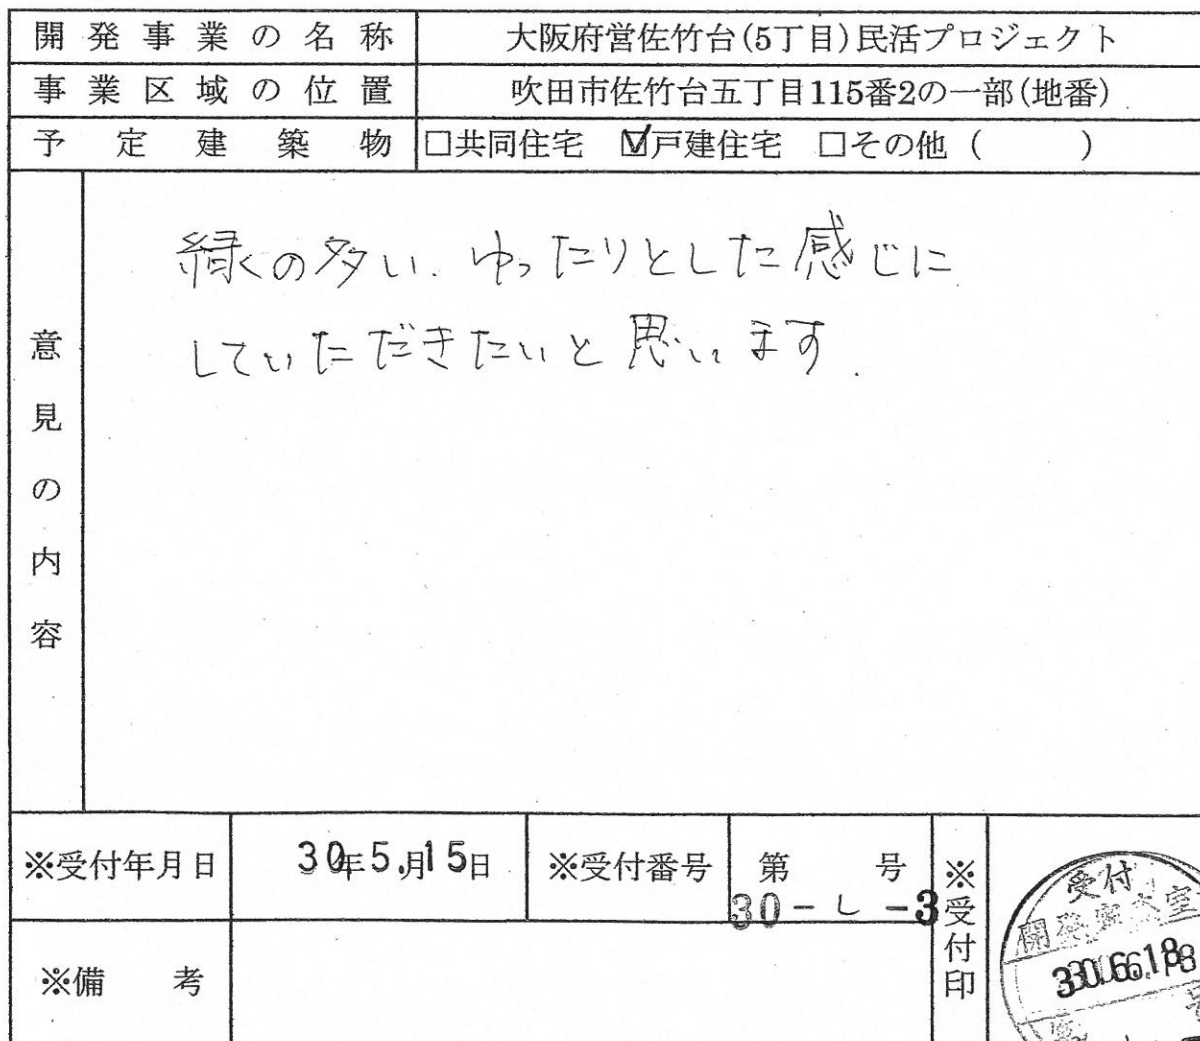 開発事業の名称 大阪府営佐竹台(5丁目)民活プロジェクト
事業区域の位置 吹田市佐竹台五丁目115番2の一部(地番)
予定建築物 □共同住宅 ☑戸建住宅 □その他 ( )
意見の内容
緑の多い、ゆったりとした感じに
していただきたいと思います.
※受付年月日 30年5.月15日 ※受付番号 第 号
30-し-3
※受付印
受付
開発審査室
30.6.18
※備 考